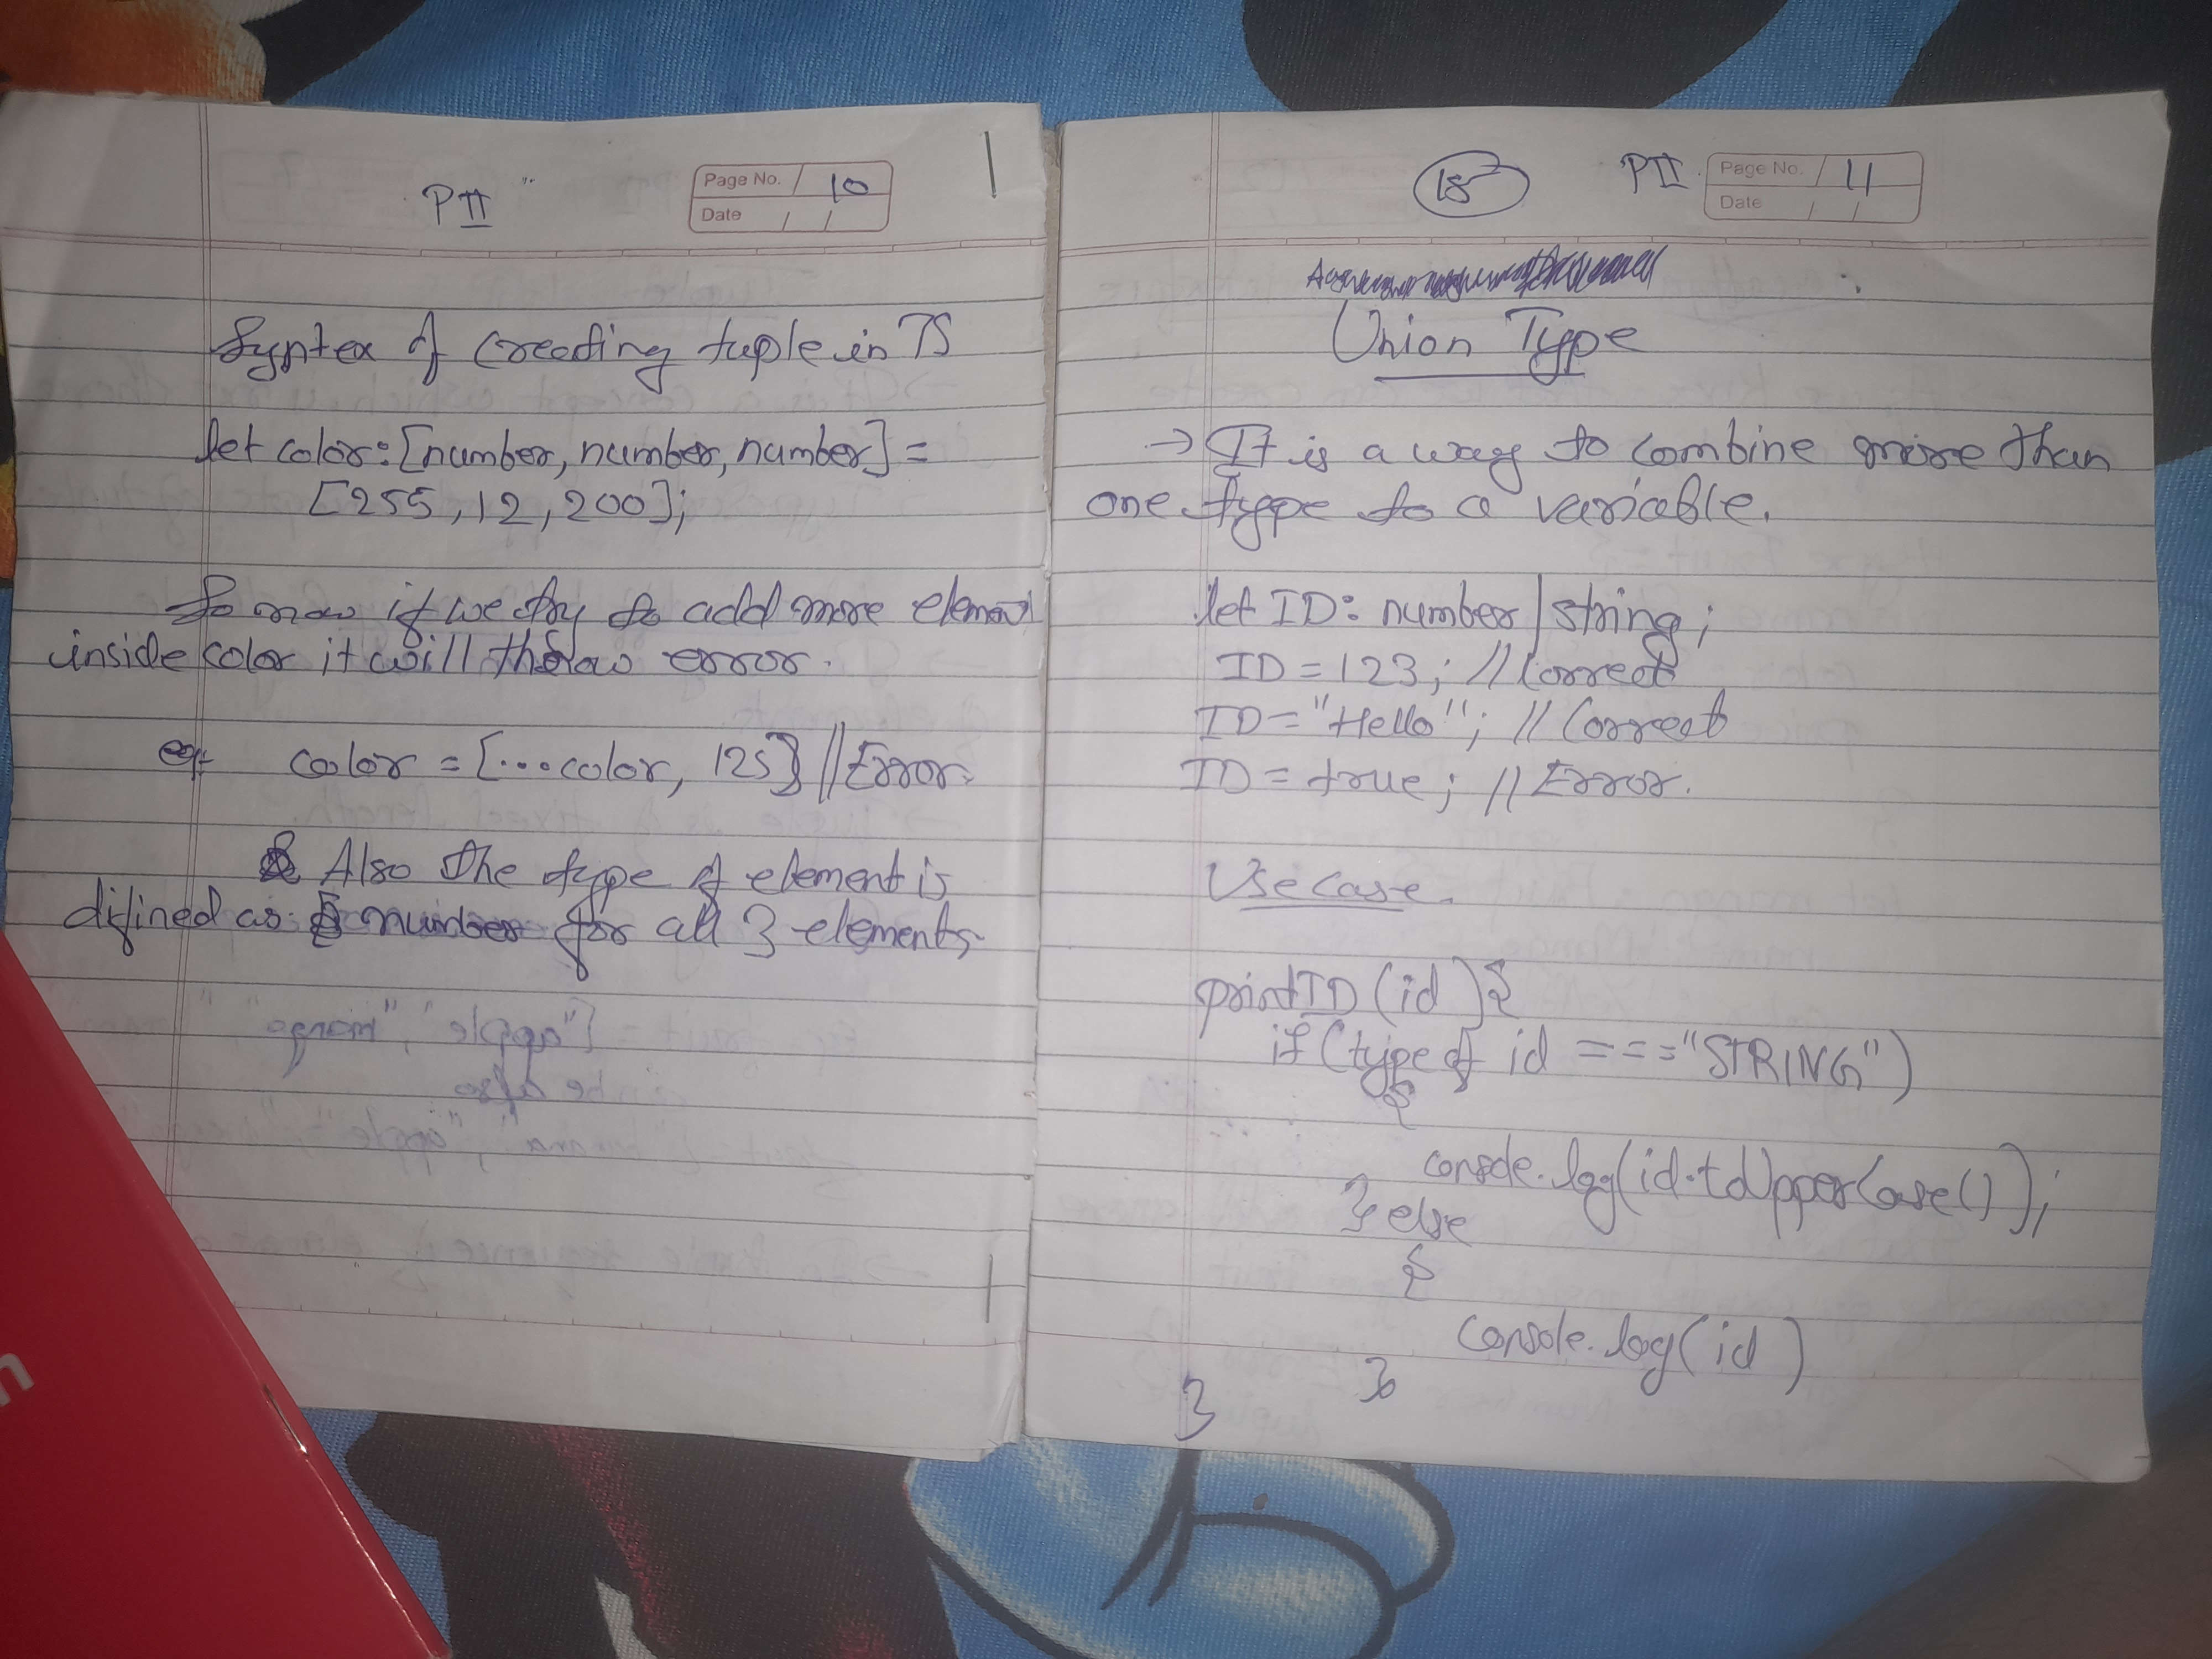 PII
Page No. 10
Date / /
Syntex of Creating tuple in TS
let color:[number, number, number] =
[255, 12, 200];
So now if we try to add more element
inside color it will throw error.
eg:- color = [...color, 125] //Error.
Also the type of element is
difined as number for all 3 elements.
15 PII
Page No. 11
Date / /
Union Type
→ It is a way to Combine more than
one type to a variable.
let ID: number | string;
ID = 123; // Correct
ID = "Hello"; // Correct
ID = true; // Error.
Use case.
printID (id) {
if (type of id === "STRING")
{
console.log(id.toUpperCase());
} else
{
Console.log(id)
}
}